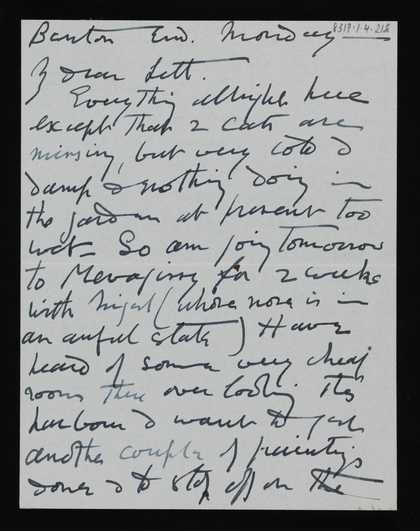 Benton End. Monday 8317.1.4.216
My dear Lett.
Everything allright here
except that 2 cats are
missing, but very cold &
damp & nothing doing in
the garden at present too
wet – So am going tomorrow
to Mevagissey for 2 weeks
with Nigel (whose nose is in
an awful state) Have
heard of some very cheap
rooms there over looking the
harbour & want to get
another couple of paintings
done & to stop off on the